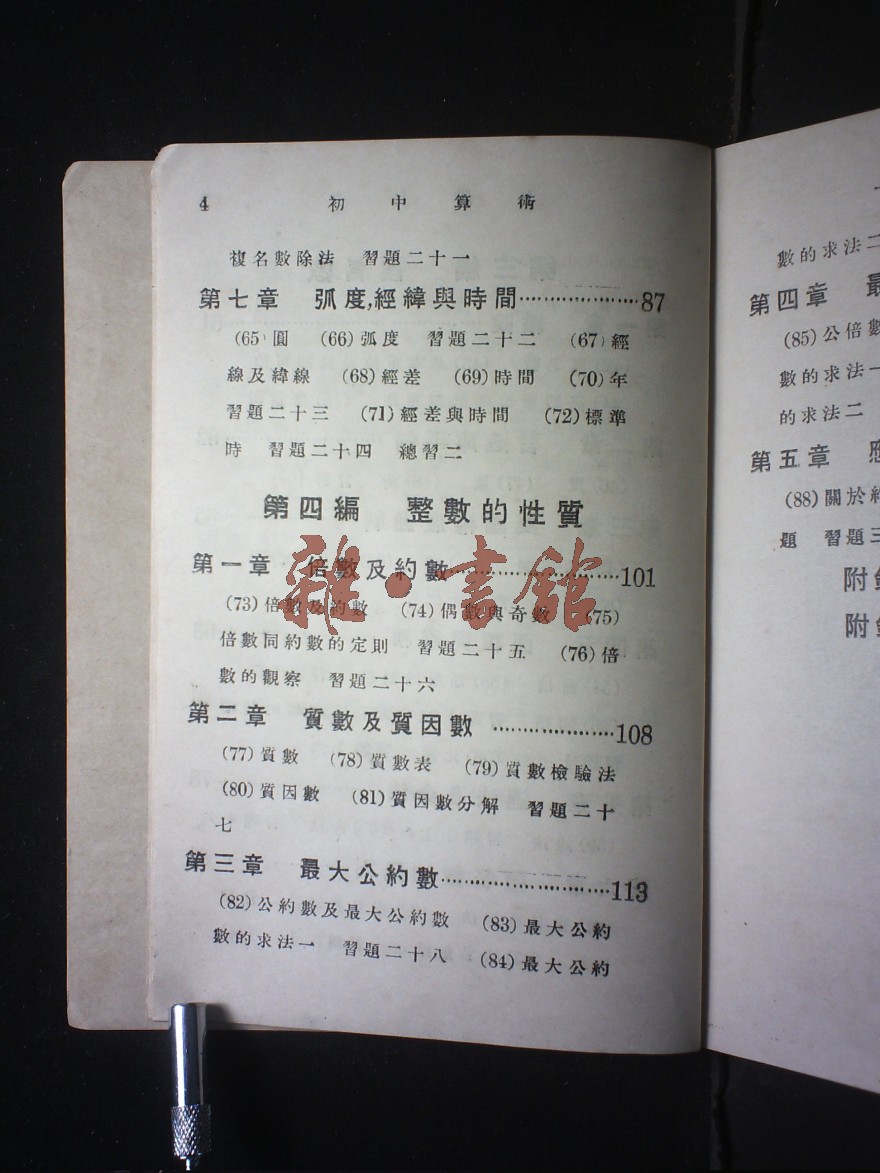 4 初中算術
複名數除法 習題二十一
第七章 弧度,經緯與時間····················87
(65)圓 (66)弧度 習題二十二 (67)經
線及緯線 (68)經差 (69)時間 (70)年
習題二十三 (71)經差與時間 (72)標準
時 習題二十四 總習二
第四編 整數的性質
第一章 倍數及約數····························101
(73)倍數及約數 (74)偶數與奇數 (75)
倍數同約數的定則 習題二十五 (76)倍
數的觀察 習題二十六
第二章 質數及質因數 ·····················108
(77)質數 (78)質數表 (79)質數檢驗法
(80)質因數 (81)質因數分解 習題二十
七
第三章 最大公約數····························113
(82)公約數及最大公約數 (83)最大公約
數的求法一 習題二十八 (84)最大公約
雜·書館
數的求法二
第四章
(85)公倍
數的求法一
的求法二
第五章
(88)關於
題 習題三
附
附